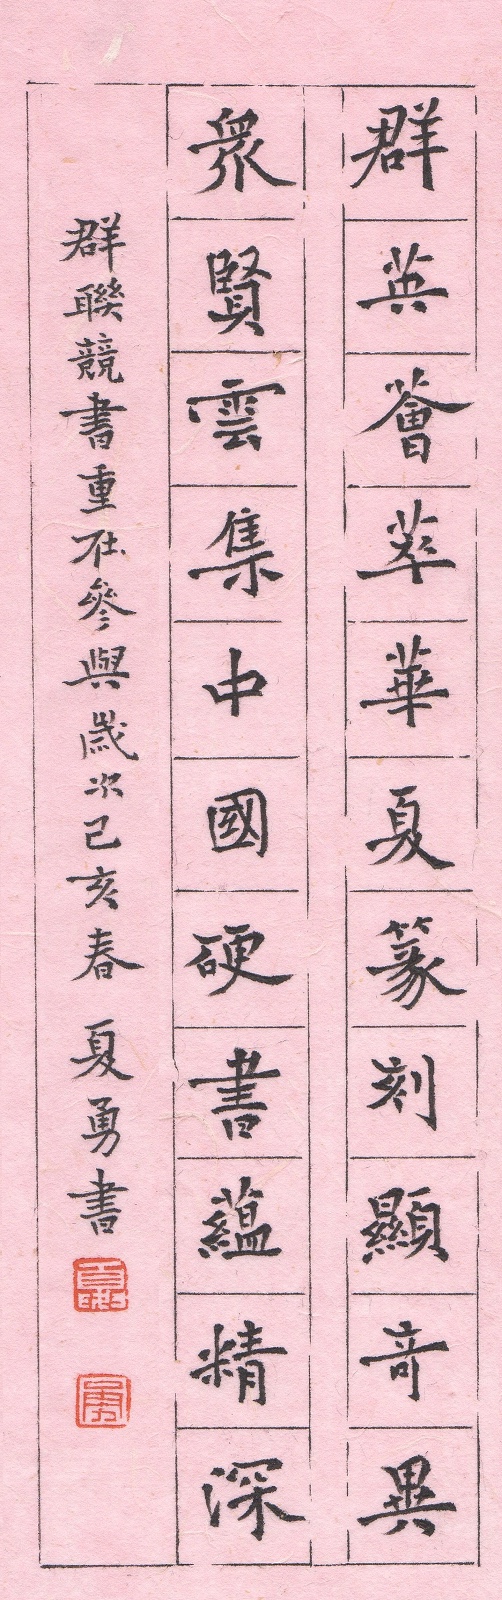 群英薈萃華夏篆刻顯奇異
衆賢雲集中國硬書蘊精深
群聯競書重在參與歲次己亥春 夏勇書